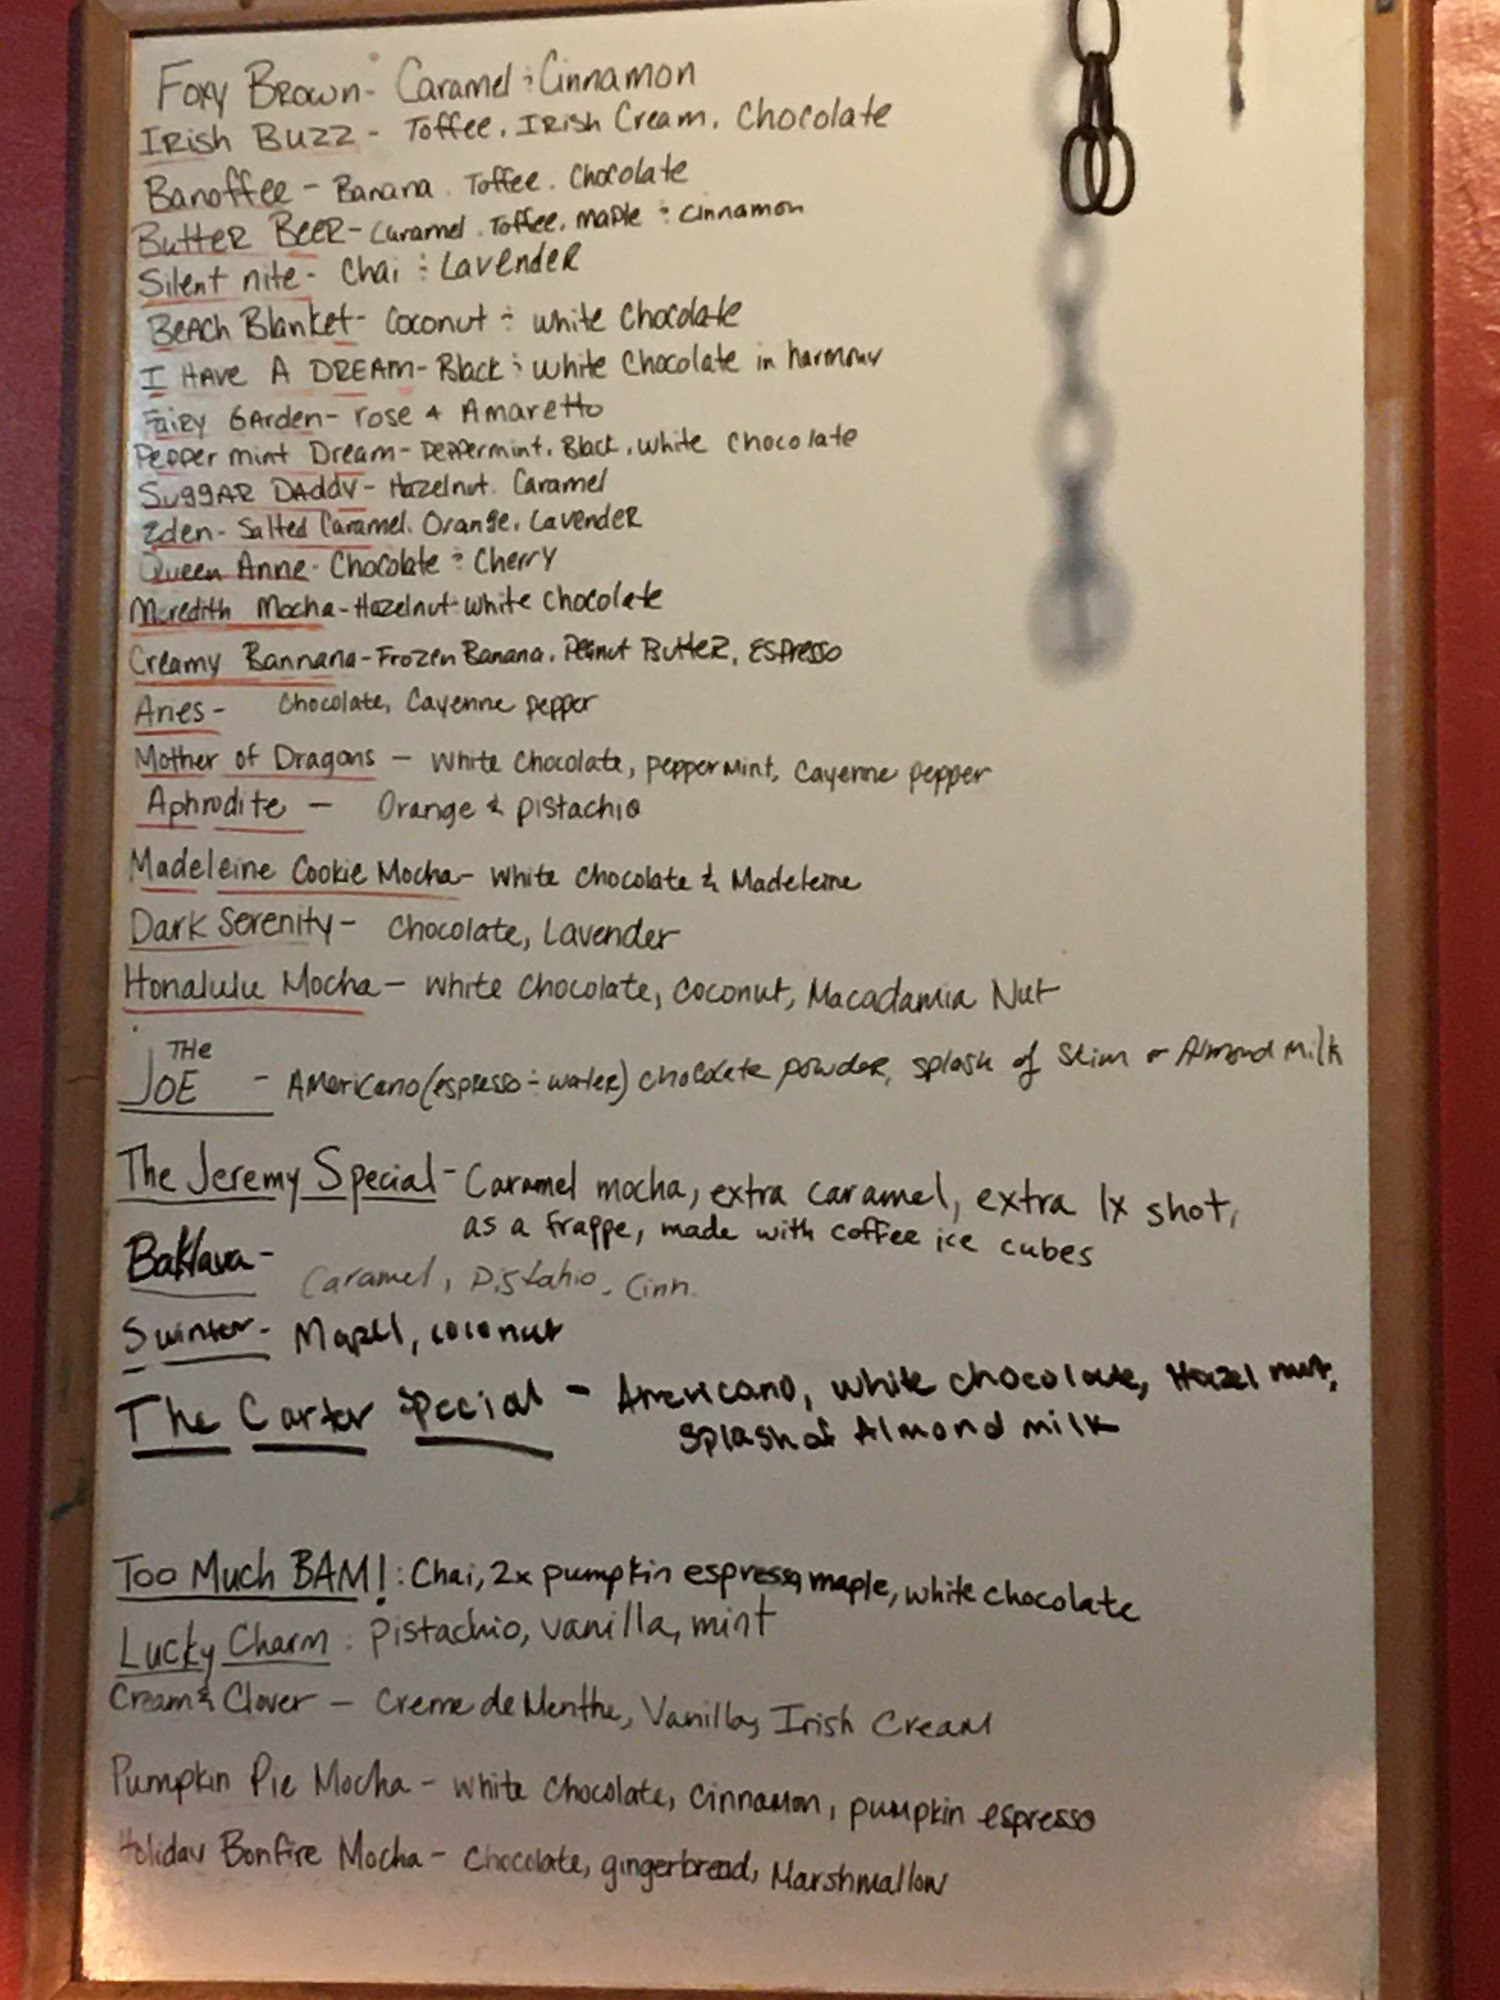 Foxy Brown- Caramel ÷ Cinnamon
IRisH BUZZ - Toffee, IRisH Cream, Chocolate
Banoffee - Banana. Toffee. Chocolate
ButteR BeeR- Caramel. Toffee, maple ÷ cinnamon
Silent nite- Chai ÷ LavendeR
BeAch Blanket- Coconut ÷ white Chocolate
I HAVE A DREAM- Black ÷ white Chocolate in harmony
FaiRy GArden- rose & Amaretto
Pepper mint Dream- Peppermint. Black. white Chocolate
SuggAR DAddy- Hazelnut. Caramel
Eden- Salted Caramel. Orange. LavendeR
Queen Anne- Chocolate ÷ Cherry
Meredith Mocha- Hazelnut- white Chocolate
Creamy Bannana- Frozen Banana. Peanut ButteR, Espresso
Aries- Chocolate, Cayenne pepper
Mother of Dragons - White Chocolate, pepperMint, Cayenne pepper
Aphrodite - Orange & pistachio
Madeleine Cookie Mocha- White Chocolate & Madeleine
Dark Serenity- Chocolate, Lavender
Honalulu Mocha- White Chocolate, Coconut, Macadamia Nut
THe
JOE - AMericano (espresso ÷ water) chocolate powder, splash of Skim or Almond Milk
The Jeremy Special- Caramel mocha, extra caramel, extra 1x shot,
as a frappe, made with coffee ice cubes
Baklava- Caramel, Pistahio, Cinn.
Swinter- Mapel, coconut
The Carter Special - Americano, white chocolate, Hazel nut,
Splash of Almond milk
Too Much BAM!: Chai, 2x pumpkin espresso, maple, white chocolate
Lucky Charm: pistachio, vanilla, mint
Cream & Clover - Creme de Menthe, Vanilla, Irish CreaM
Pumpkin Pie Mocha - White Chocolate, Cinnamon, pumpkin espresso
Holiday Bonfire Mocha - Chocolate, gingerbread, Marshmallow